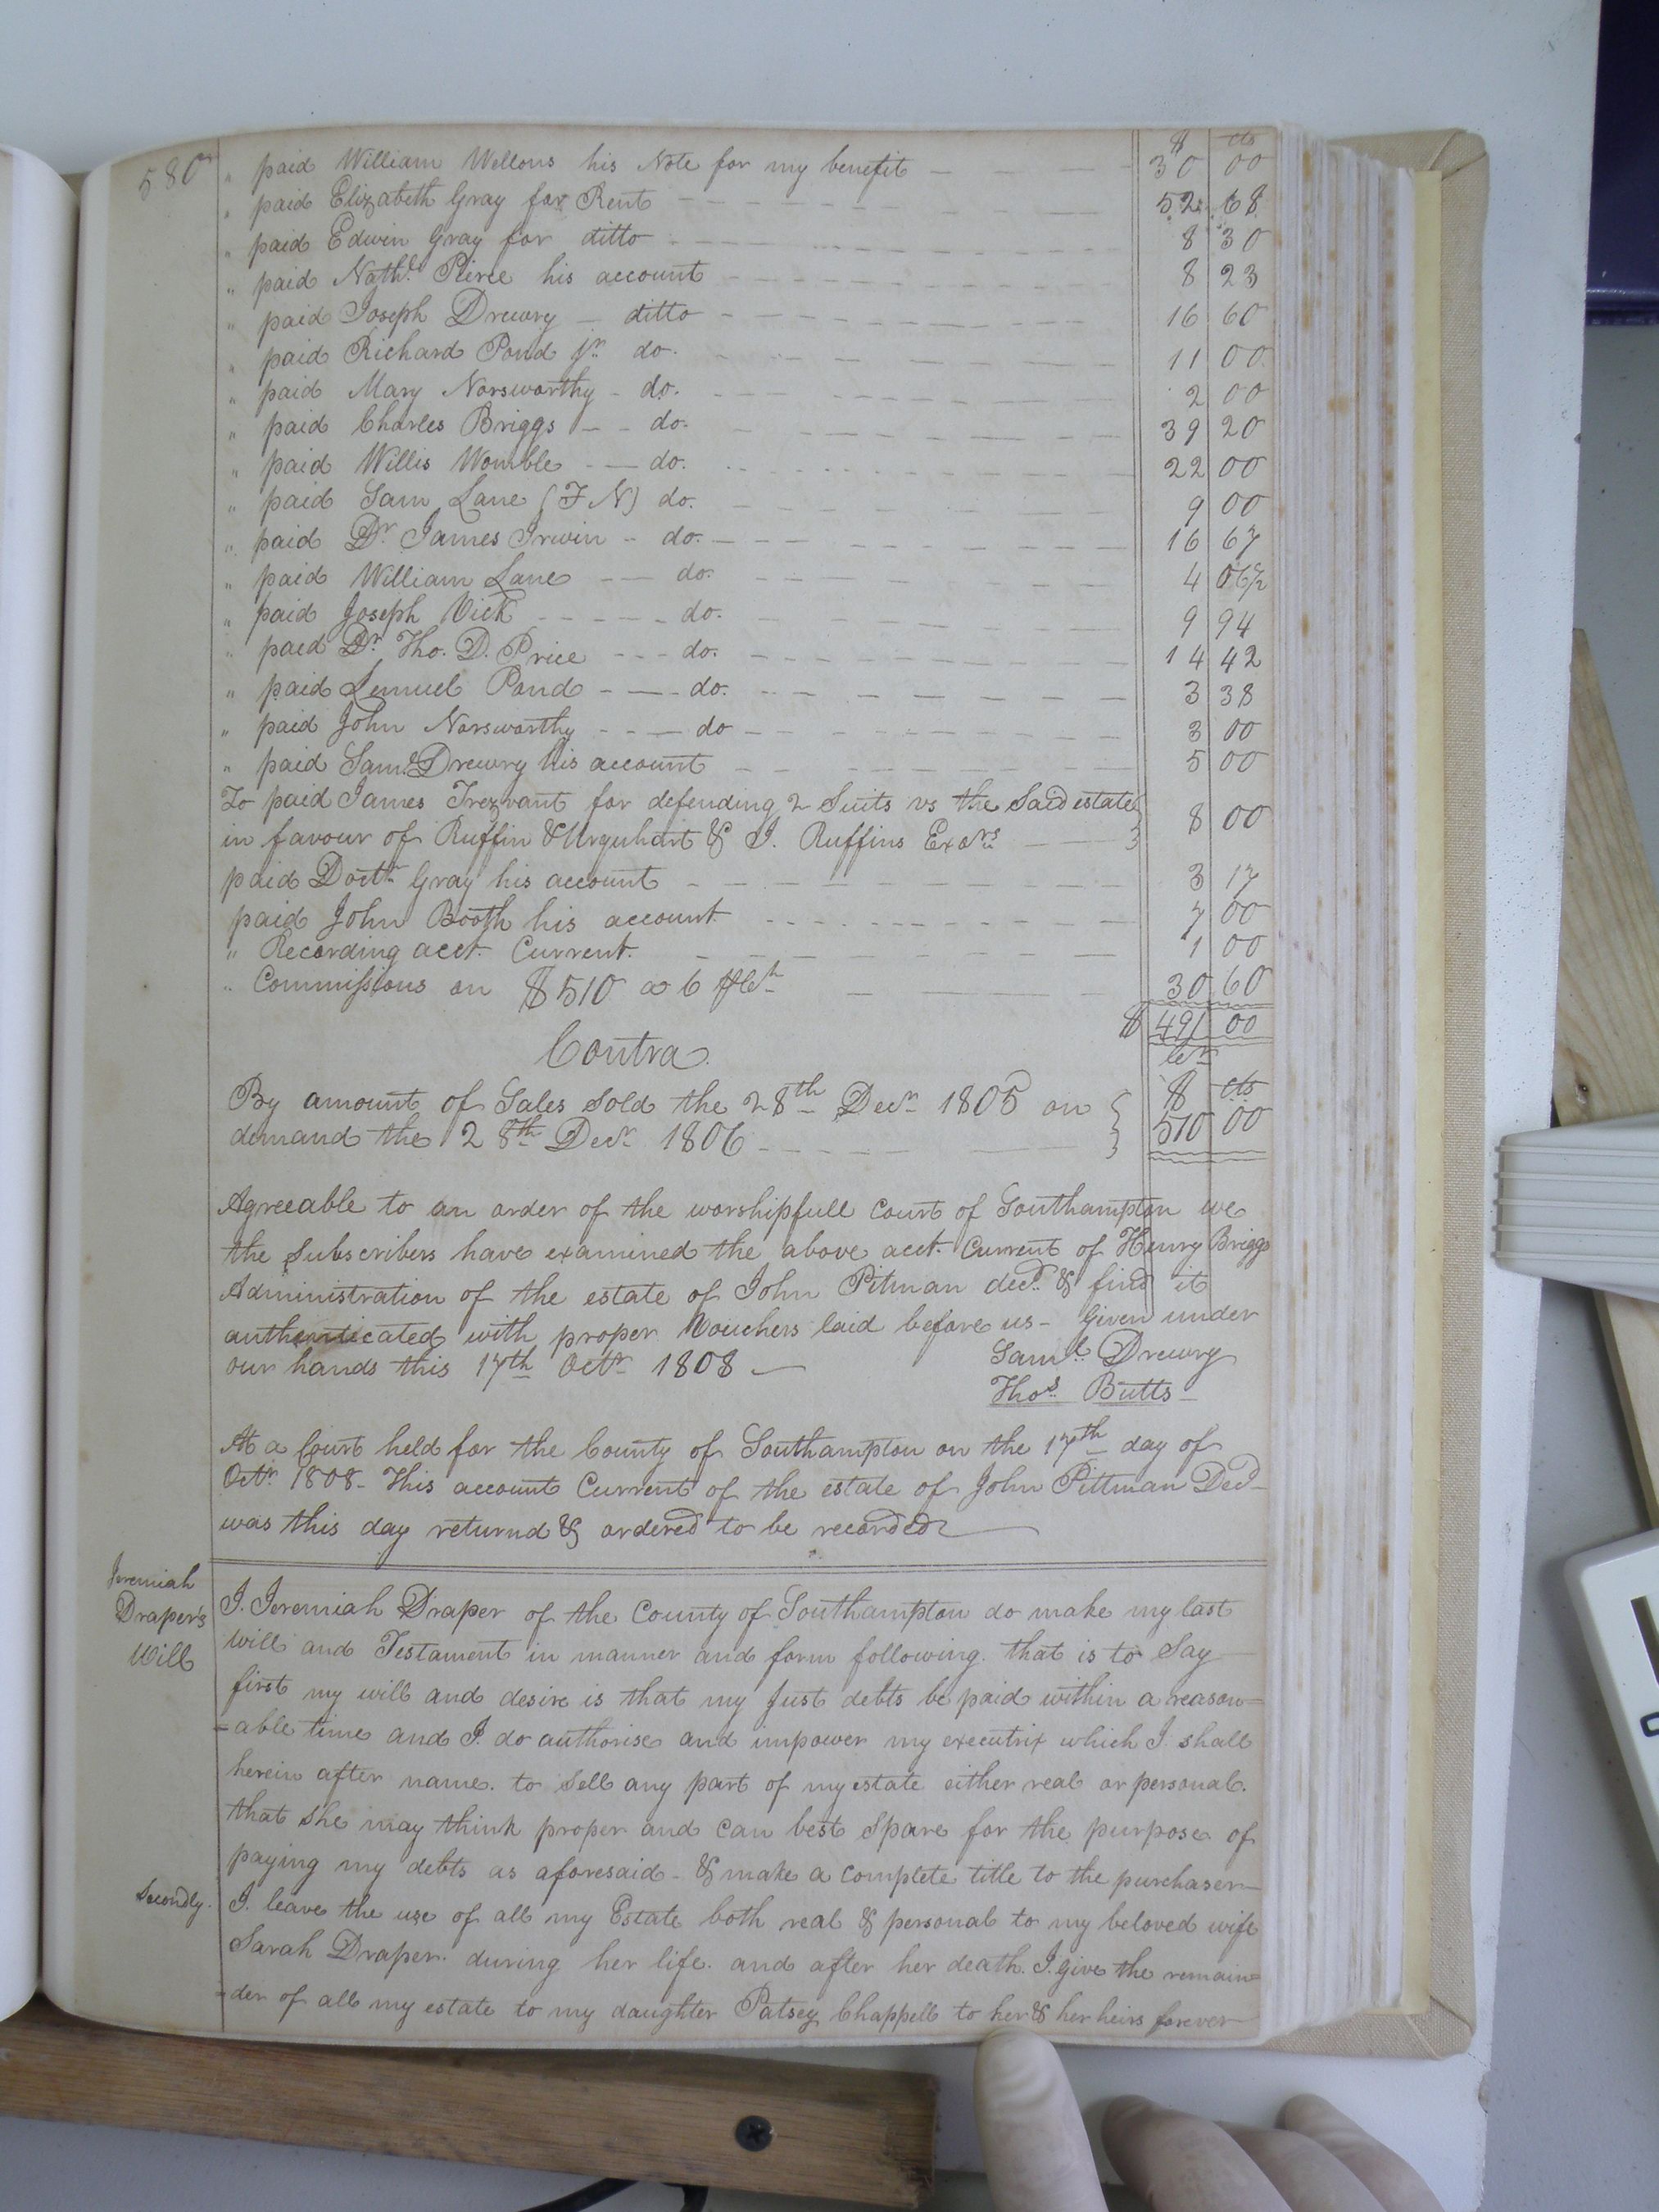 580
$ cts
" paid William Wellons his Note for my benefit 30 00
" paid Elizabeth Gray for Rent 52 68
" paid Edwin Gray for ditto 8 30
" paid Nathl. Peirce his account 8 23
" paid Joseph Drewry — ditto 16 60
" paid Richard Pond jr. do. 11 00
" paid Mary Norsworthy - do. 2 00
" paid Charles Briggs — - do. 39 20
" paid Willis Womble - — do. 22 00
" paid Sam Lane (F N) do. 9 00
" paid Dr. James Irwin - do. 16 67
" paid William Lane - — do. 4 06½
" paid Joseph Vick - - - - - do. 9 94
" paid Dr. Tho. D. Price - - - do. 14 42
" paid Lemuel Pond - — - do. 3 38
" paid John Norsworthy - - — do 3 00
" paid Saml. Drewry his account 5 00
To paid James Trezvant for defending 2 Suits vs the Said estate
in favour of Ruffin & Urquhart & J. Ruffins Exors. 8 00
paid Doctr. Gray his account 3 17
paid John Booth his account 7 00
" Recording acct. Current. 1 00
" Commissions on $510 @ 6 pCt. 30 60
$ 491 00
Contra. Cr.
$ cts
By amount of Sales Sold the 28th Decr. 1805 on
demand the 28th Decr. 1806 510 00
Agreeable to an order of the worshipfull Court of Southampton we
the Subscribers have examined the above acct. Current of Henry Briggs
Administration of the estate of John Pitman decd. & find it
authenticated with proper Vouchers laid before us - Given under
our hands this 17th Octr. 1808 —
Saml. Drewry
Thos. Butts
At a Court held for the County of Southampton on the 17th day of
Octr. 1808 - This account Current of the estate of John Pittman Decd.
was this day returnd & ordered to be recorded
Jeremiah
Draper's
Will
I. Jeremiah Draper of the County of Southampton do make my last
Will and Testament in manner and form following. that is to Say
first my will and desire is that my Just debts be paid within a reason=
=able time and I. do authorise and impower my executrix which I. shall
herein after name. to Sell any part of my estate either real or personal.
that she may think proper and can best Spare for the purpose of
paying my debts as aforesaid - & make a complete title to the purchaser
Secondly.
I. leave the use of all my Estate both real & personal to my beloved wife
Sarah Draper. during her life. and after her death. I. give the remain=
=der of all my estate to my daughter Patsey Chappell to her & her heirs forever